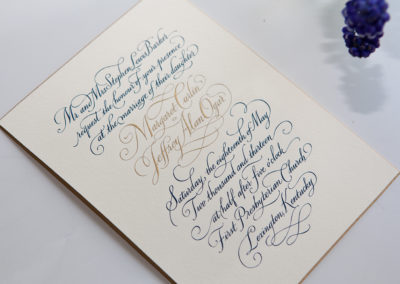 Mr. and Mrs. Stephen Lewis Barber
request the honour of your presence
at the marriage of their daughter
Margaret
to
Jeffrey Alan
Saturday, the eighteenth of May
Two thousand and thirteen
at half after five o'clock
First Presbyterian Church
Lexington, Kentucky